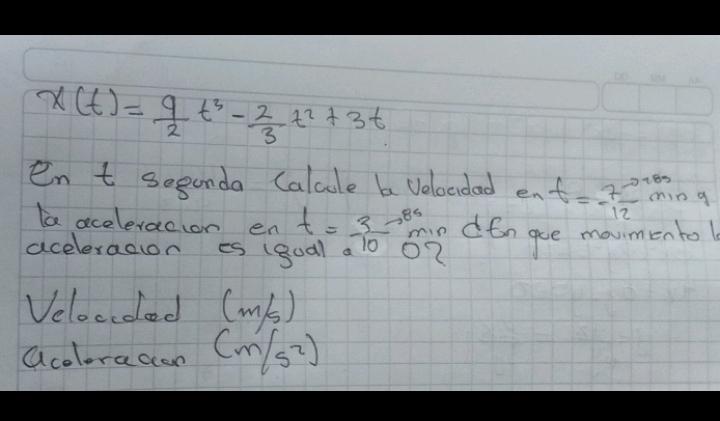 x(t) = 9/2 t³ - 2/3 t² + 3t
En t segunda Calcule la Velocidad en t = 7/12 min y
la aceleracion en t = 3/10 min ¿En que movimiento l
aceleracion es igual a 0?
Velocidad (m/s)
aceleracion (m/s²)